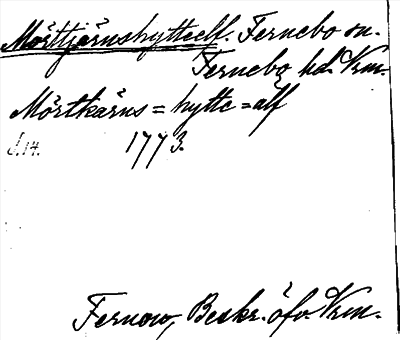 Mörttjärnshytteelf. Fernebo sn.
Fernebo hd. Vrm.
Mörtkärns=hytte=älf
J.14. 1773.
Fernow, Beskr. öfv. Vrm.